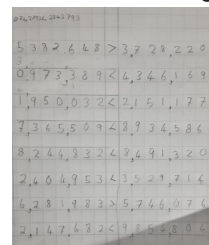 5,382,648 > 3,728,220
0,973,389 < 4,346,169
1,950,032 < 2,151,177
7,365,509 < 8,934,586
8,244,832 < 8,491,320
2,404,953 < 3,529,716
6,281,983 > 5,746,076
2,147,682 <